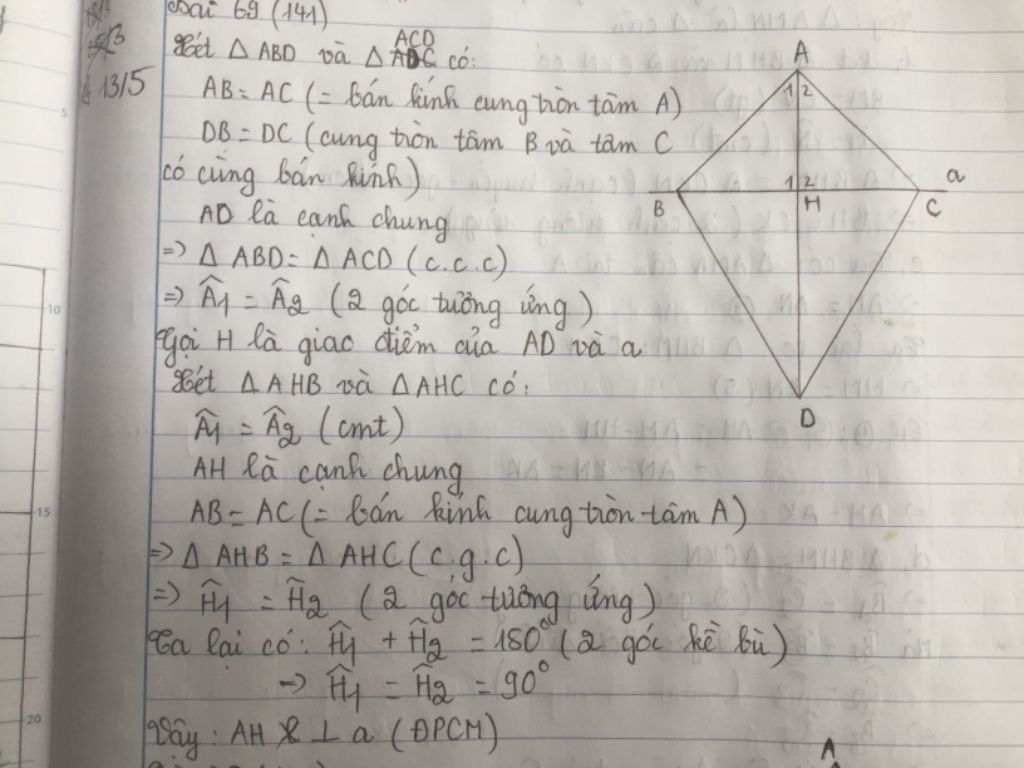 Bài 69 (141)
13/5
Xét Δ ABD và Δ ACD có:
AB = AC (= bán kính cung tròn tâm A)
DB = DC (cung tròn tâm B và tâm C
có cùng bán kính)
AD là cạnh chung
=> Δ ABD = Δ ACD (c.c.c)
=> Â1 = Â2 (2 góc tương ứng)
Gọi H là giao điểm của AD và a
Xét Δ AHB và Δ AHC có:
Â1 = Â2 (cmt)
AH là cạnh chung
AB = AC (= bán kính cung tròn tâm A)
=> Δ AHB = Δ AHC (c.g.c)
=> Ĥ1 = Ĥ2 (2 góc tương ứng)
Ta lại có: Ĥ1 + Ĥ2 = 180° (2 góc kề bù)
=> Ĥ1 = Ĥ2 = 90°
Vậy: AH ⊥ a (ĐPCM)
A
1 2
1 2
a
B
H
C
D
A
5
10
15
20